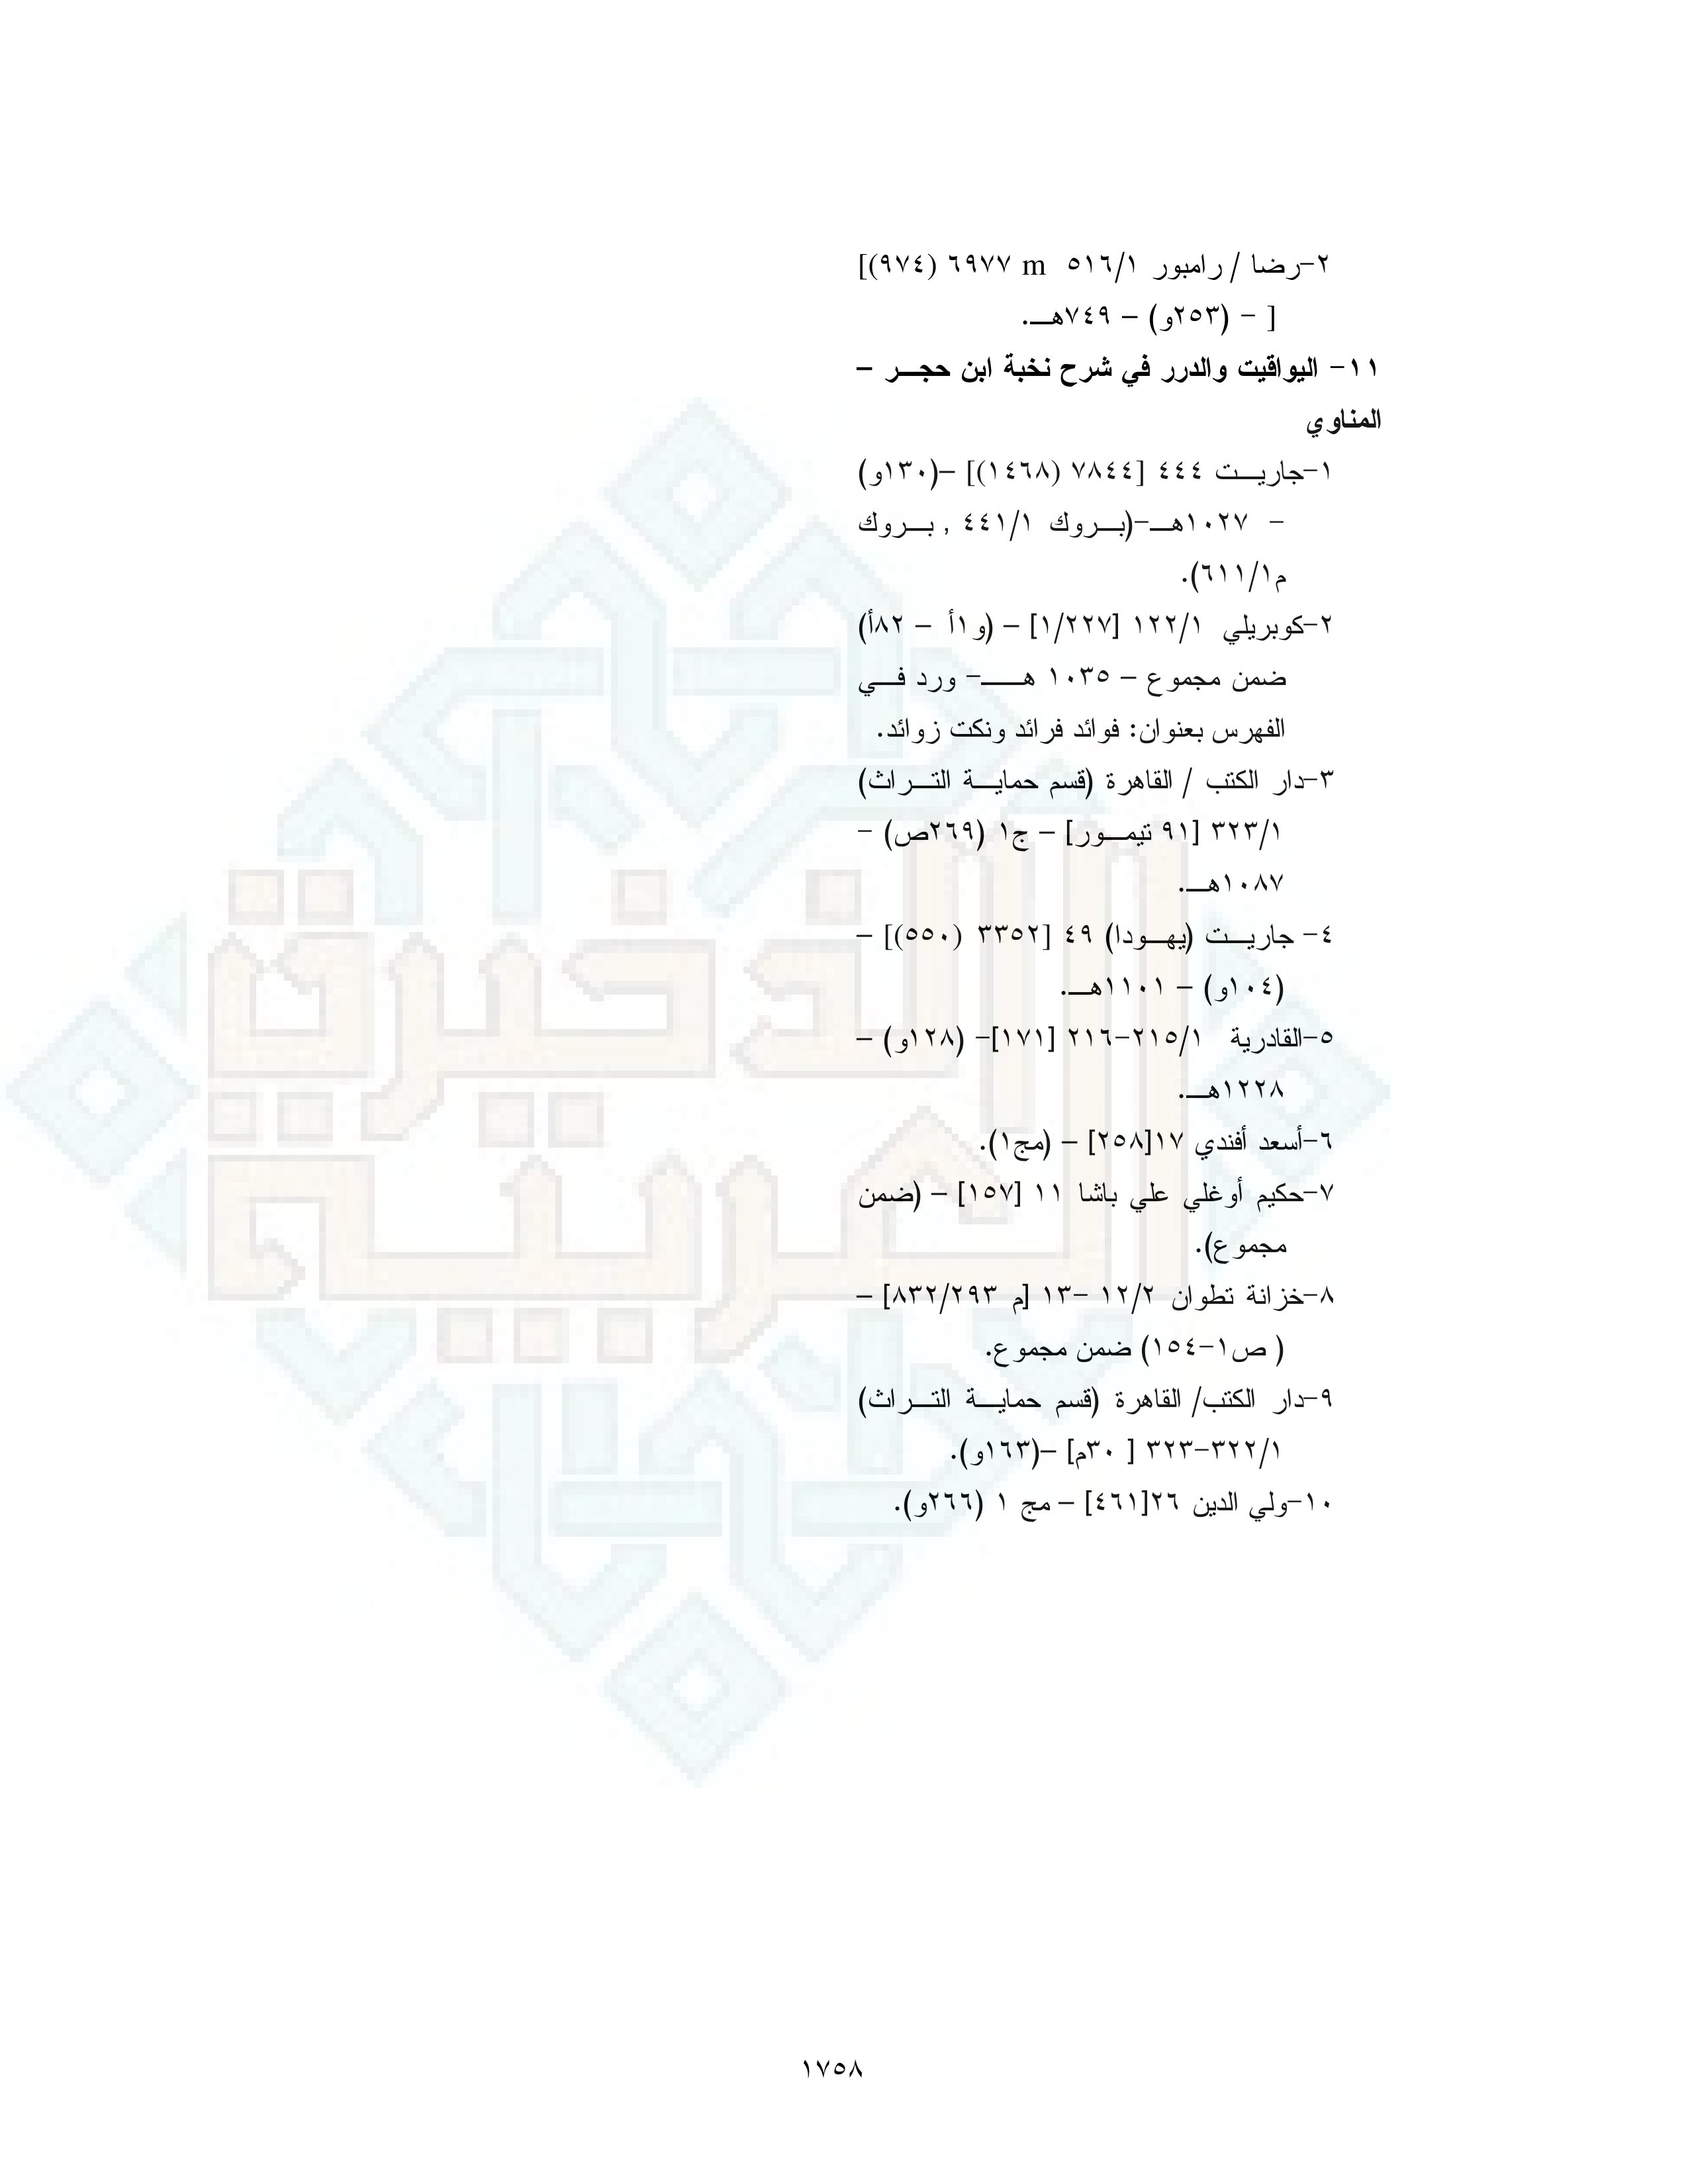 ٢-رضا / رامبور ٥١٦/١ m ٦٩٧٧ (٩٧٤)]
[ - (٢٥٣و) – ٧٤٩هـــ.
١١- اليواقيت والدرر في شرح نخبة ابن حجـــر –
المناوي
١-جاريـــت ٤٤٤ [٧٨٤٤ (١٤٦٨)] –(١٣٠و)
- ١٠٢٧هـــ-(بـــروك ٤٤١/١ , بـــروك
م٦١١/١).
٢-كوبريلي ١٢٢/١ [١/٢٢٧] – (و١أ – ٨٢أ)
ضمن مجموع – ١٠٣٥ هــــ- ورد فـــي
الفهرس بعنوان: فوائد فرائد ونكت زوائد.
٣-دار الكتب / القاهرة (قسم حمايـــة التـــراث)
٣٢٣/١ [٩١ تيمـــور] – ج١ (٢٦٩ص) -
١٠٨٧هـــ.
٤- جاريـــت (يهـــودا) ٤٩ [٣٣٥٢ (٥٥٠)] –
(١٠٤و) – ١١٠١هـــ.
٥-القادرية ٢١٥/١-٢١٦ [١٧١]- (١٢٨و) –
١٢٢٨هـــ.
٦-أسعد أفندي ١٧[٢٥٨] – (مج١).
٧-حكيم أوغلي علي باشا ١١ [١٥٧] – (ضمن
مجموع).
٨-خزانة تطوان ١٢/٢ -١٣ [م ٨٣٢/٢٩٣] –
( ص١-١٥٤) ضمن مجموع.
٩-دار الكتب/ القاهرة (قسم حمايـــة التـــراث)
٣٢٢/١-٣٢٣ [ ٣٠م] –(١٦٣و).
١٠-ولي الدين ٢٦[٤٦١] – مج ١ (٢٦٦و).
الذخيرة
العربية
١٧٥٨